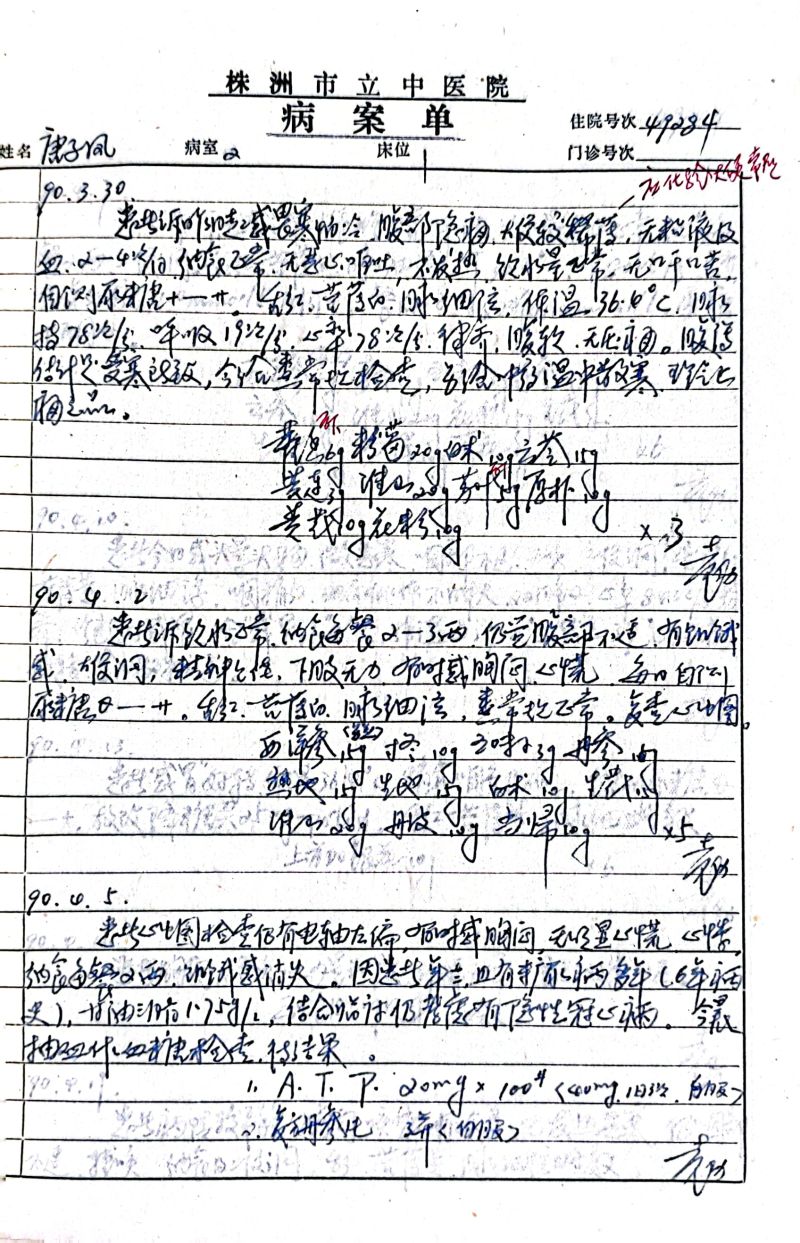 株洲市立中医院
病案单
住院号次 49284
姓名 唐子凤 病室 2 床位 门诊号次
90.3.30
患者诉昨晚起感畏寒怕冷,腹部隐痛,大便较稀薄,无粘液及
血,2—4次/日,纳食正常,无恶心呕吐,不发热,饮水量正常,无口干口苦,
自测尿糖+—++。舌红,苔薄白,脉细弦,体温36.4℃,脉
搏78次/分,呼吸19次/分,心率78次/分,律齐,腹软,无压痛。腹泻
估计是受寒所致,今查粪常规检查,
藿香6g 20g 白术10g 云苓15g
黄连3g 淮山20g 苏叶5g 厚朴10g
黄芪10g 花粉10g ×3
90.4.2
患者诉饮水正常,纳食每餐2—3两,仍觉腹部不适,有饥饿
感,大便调,精神尚佳,下肢无力,有时感胸闷、心慌,每日自测
尿糖+—++。舌红,苔薄白,脉细弦,粪常规正常。复查心电图。
西洋参15g 寸冬10g 五味3g 丹参15g
熟地15g 生地15g 白术10g 生芪15g
淮山20g 丹皮10g 当归10g ×5
90.4.5.
患者心电图检查仍有电轴左偏,有时感胸闷,无明显心慌、心悸,
纳食每餐2两,饥饿感消失。因患者年高,且有糖尿病多年(6年病
史),甘油三脂1.75g/L,结合临床仍考虑有隐性冠心病。今晨
抽血作血糖检查,待结果。
1. A.T.P. 20mg×100# <40mg 1日3次 自服>
2. 复方丹参片 3瓶<自服>